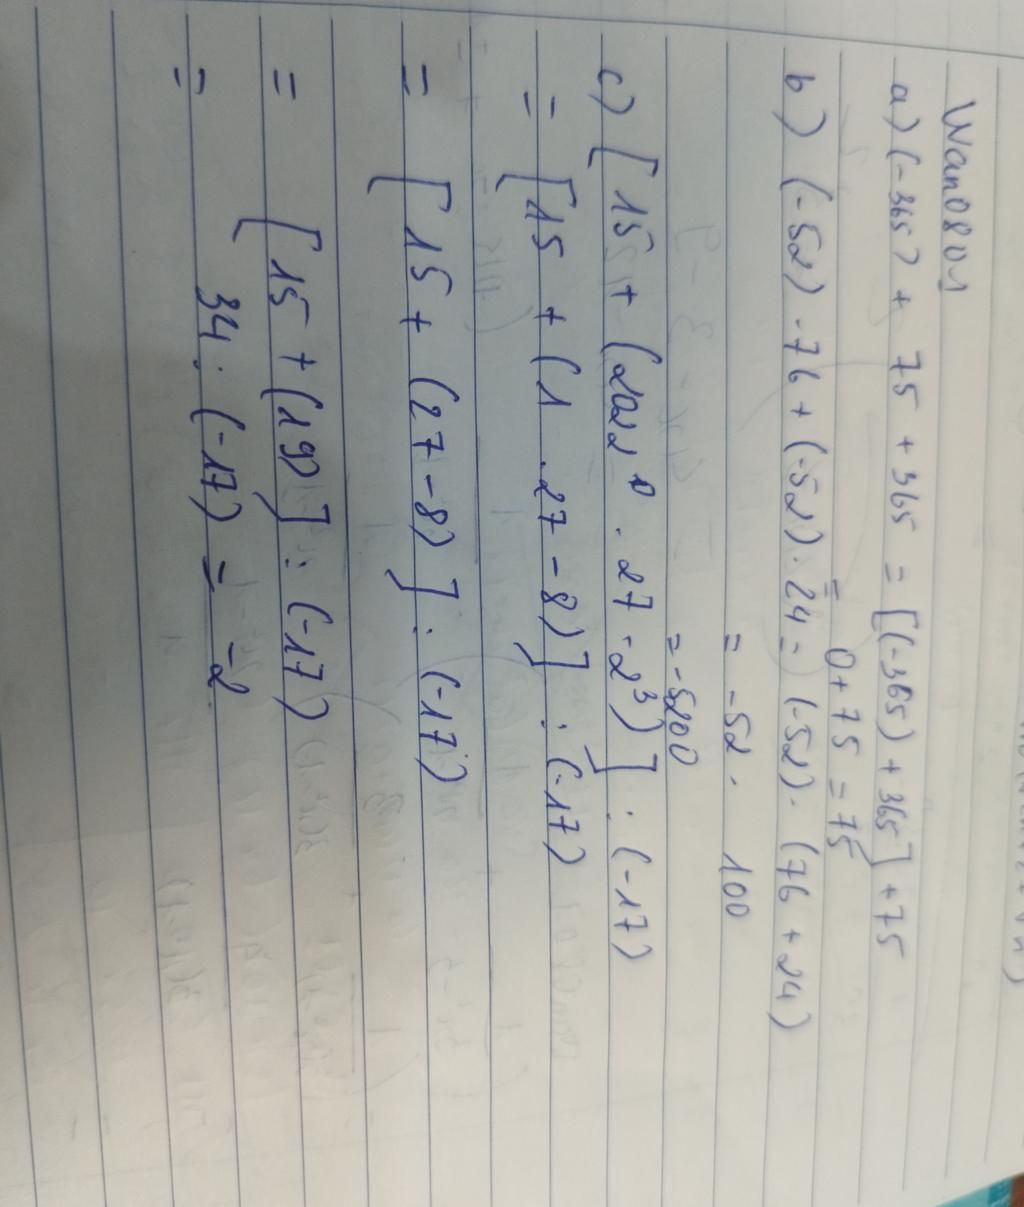 Wan0801
a) (-365) + 75 + 365 = [(-365) + 365] + 75
= 0 + 75 = 75
b) (-52) . 76 + (-52) . 24 = (-52) . (76 + 24)
= -52 . 100
= -5200
c) [15 + (2022⁰ . 27 - 2³)] : (-17)
= [15 + (1 . 27 - 8)] : (-17)
= [15 + (27 - 8)] : (-17)
= [15 + (19)] : (-17)
= 34 : (-17) = -2